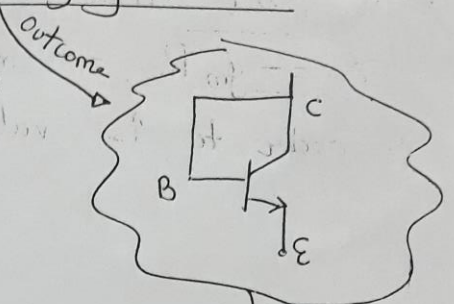 outcome
C
B
E